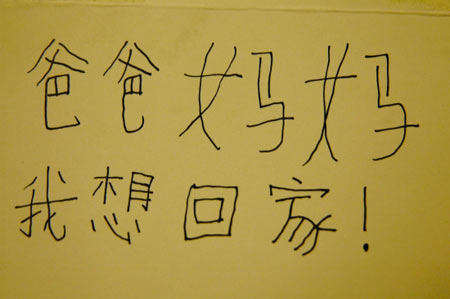 爸爸妈妈
我想回家！